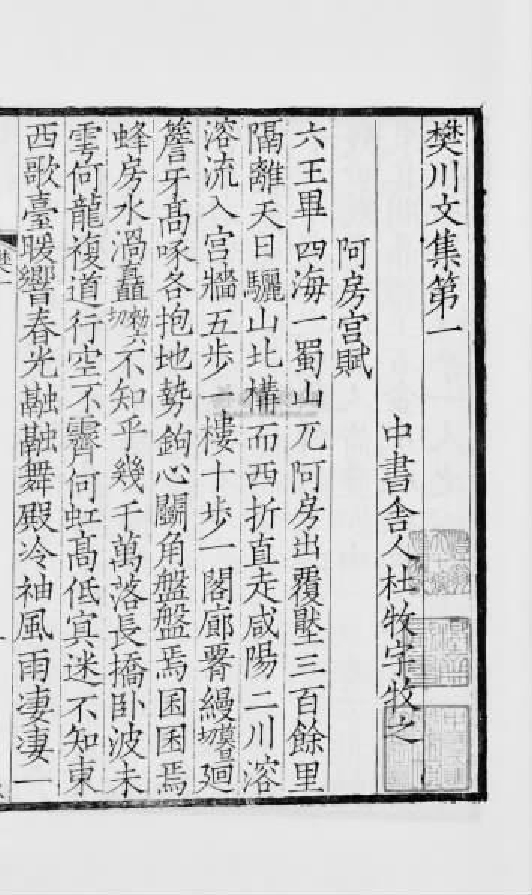 樊川文集第一
中書舍人杜牧字牧之
阿房宮賦
六王畢四海一蜀山兀阿房出覆壓三百餘里
隔離天日驪山北構而西折直走咸陽二川溶
溶流入宮牆五步一樓十步一閣廊署縵莫旦切廻
簷牙髙啄各抱地勢鉤心鬭角盤盤焉囷囷焉
蜂房水渦矗勑六切不知乎幾千萬落長橋卧波未
雩何龍複道行空不霽何虹髙低㝠迷不知東
西歌臺暖響春光融融舞殿冷袖風雨凄凄一